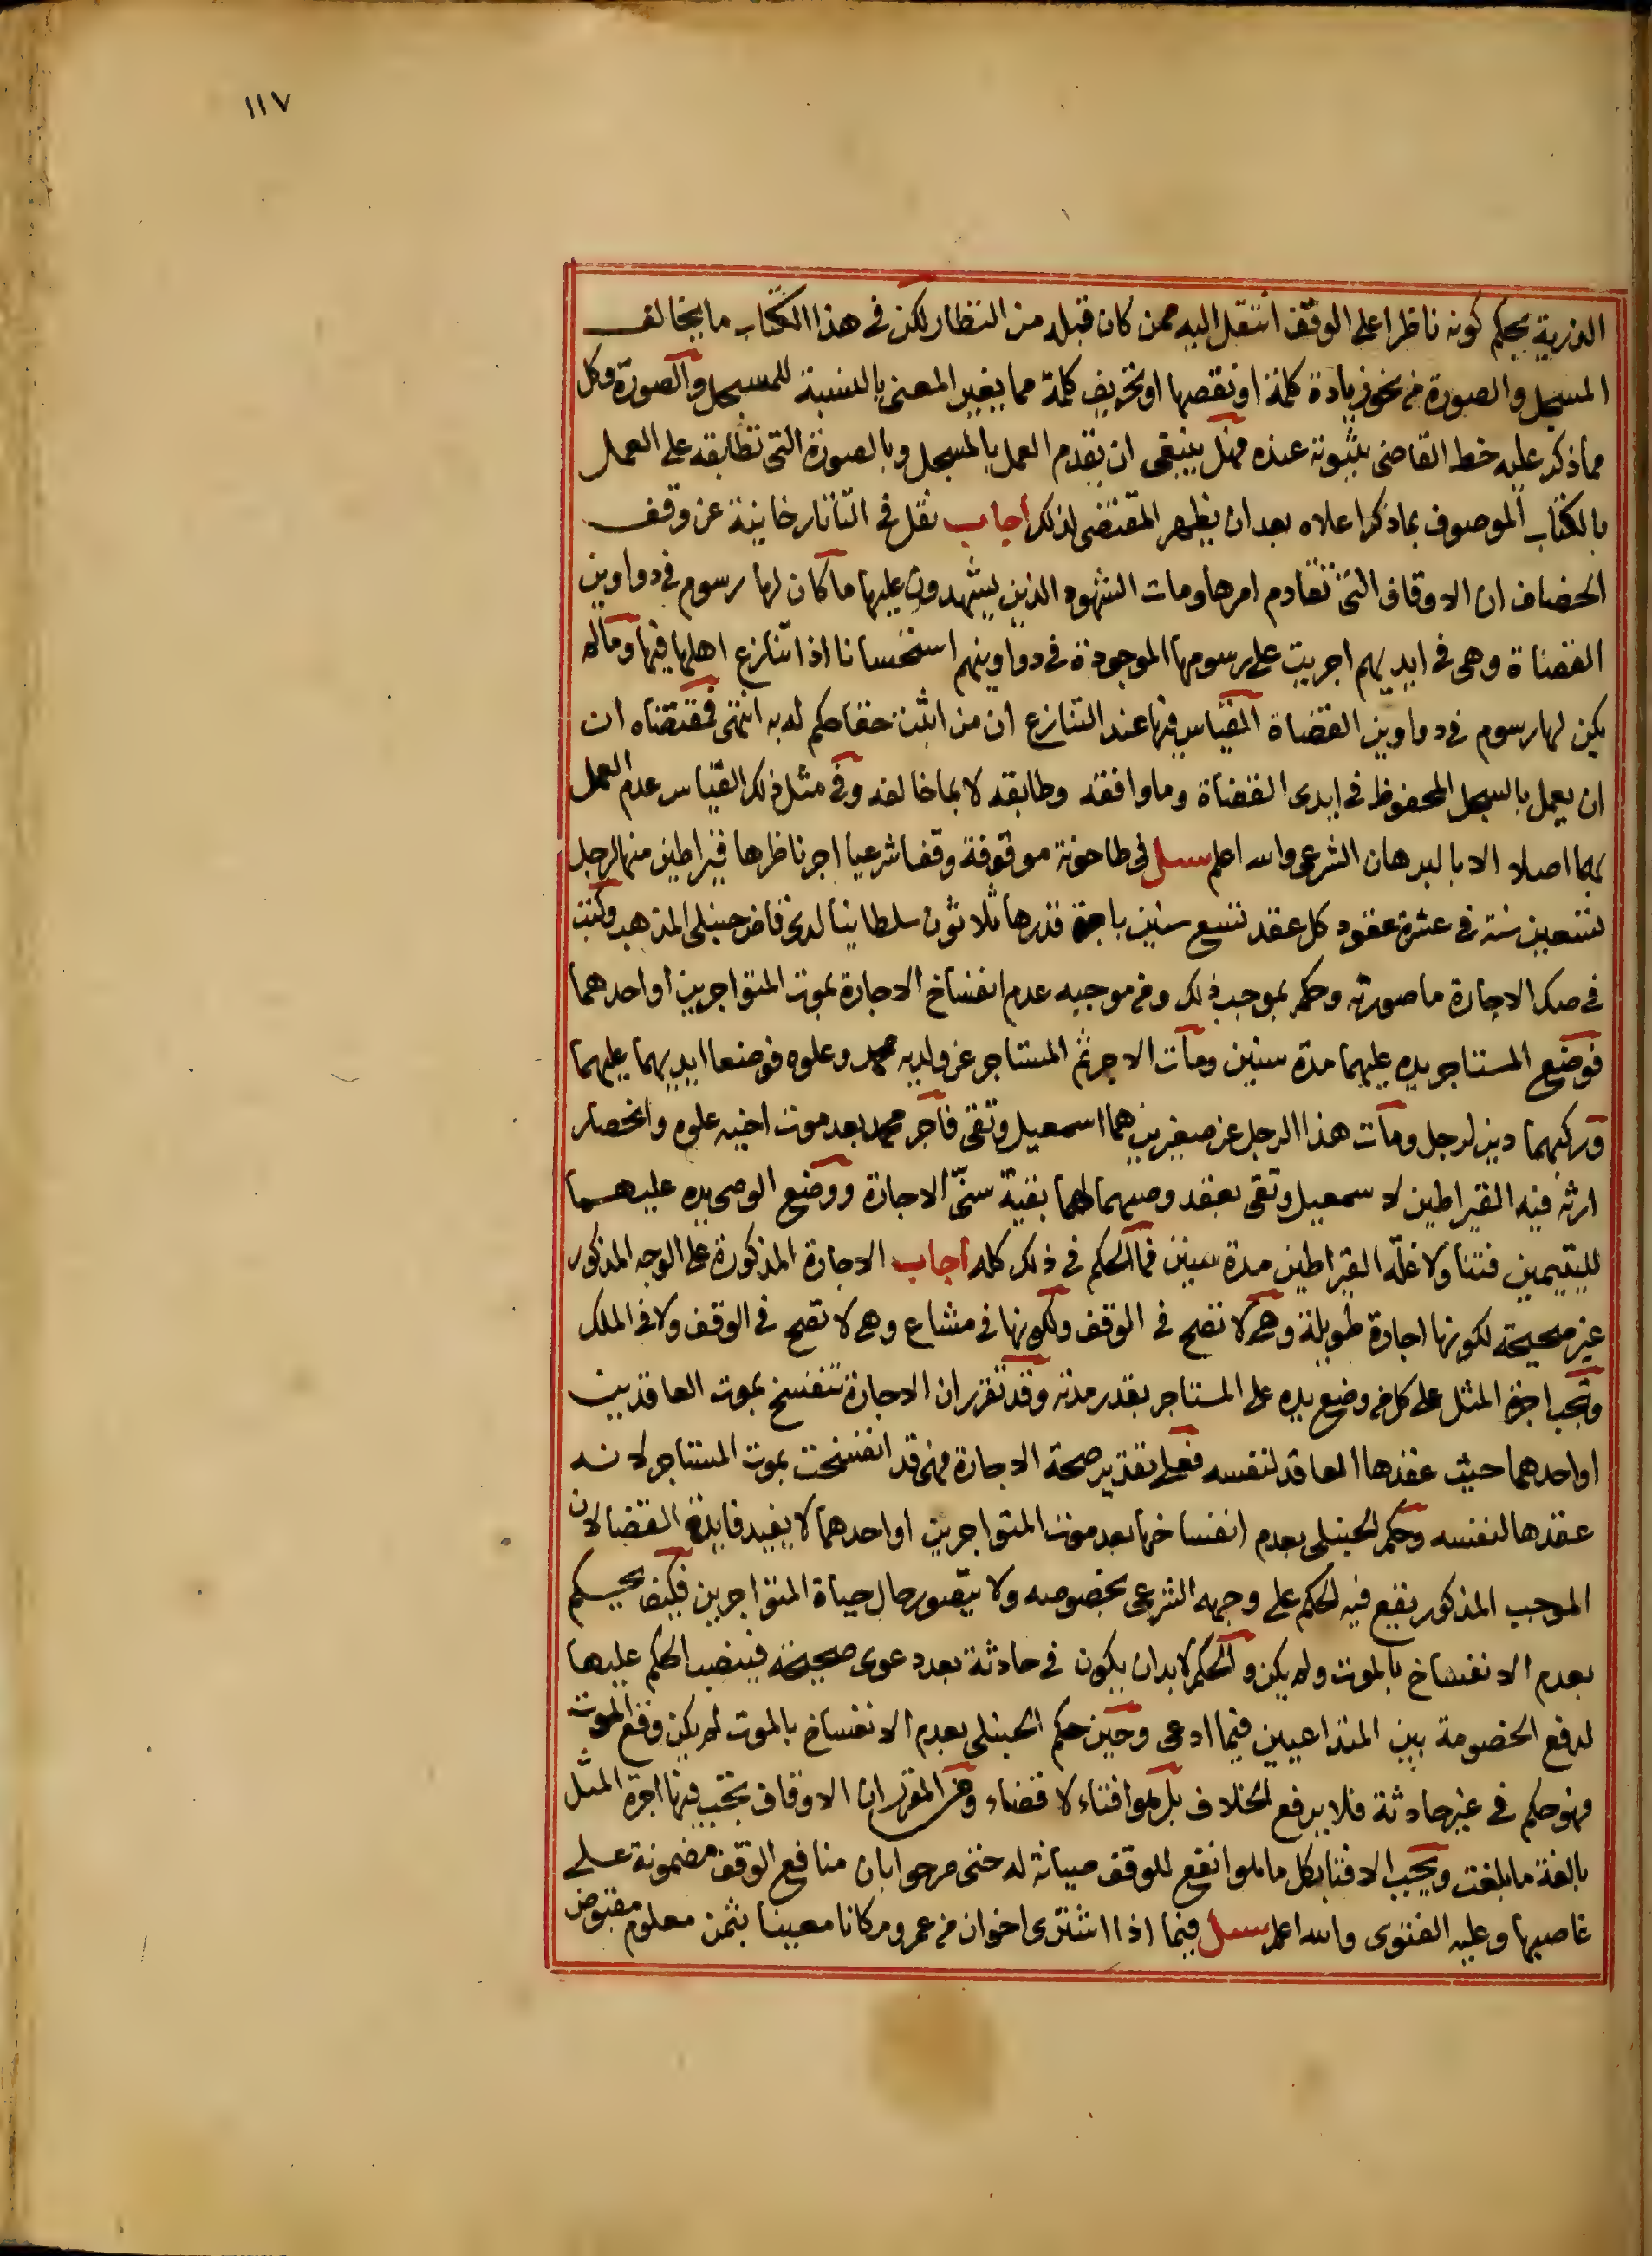 ١١٧
الذرية بحكم كونه ناظرا على الوقف انتقل اليه ممن كان قبله من النظار لكن فى هذا الكتاب ما يخالف
المسجل والصورة من نحو زيادة كلمة او نقصها او تحريف كلمة مما يغير المعنى بالنسبة للمسجل والصورة وكل
مما ذكر عليه خط القاضى بثبوته عنده فهل ينبغى ان يقدم العمل بالمسجل وبالصورة التى تطابقه على العمل
بالكتاب الموصوف بما ذكر اعلاه بعد ان يظهر المقتضى لذلك اجاب نقل فى التاتارخانية عن وقف
الخصاف ان الاوقاف التى تقادم امرها ومات الشهود الذين يشهدون عليها ما كان لها رسوم فى دواوين
القضاة وهى فى ايديهم اجريت على رسومها الموجودة فى دواوينهم استحسانا اذا تنازع اهلها فيها وما لم
يكن لها رسوم فى دواوين القضاة القياس فيها عند التنازع ان من اثبت حقا حكم له به انتهى فمقتضاه ان
ان يعمل بالسجل المحفوظ فى ايدى القضاة وما وافقه وطابقه لا بما خالفه وفى مثل ذلك القياس عدم العمل
بهما اصلا الا بالبرهان الشرعى والله اعلم سئل فى طاحونة موقوفة وقفا شرعيا اجر ناظرها قيراطين منها لرجل
تسعين سنة فى عشرة عقود كل عقد تسع سنين باجرة قدرها ثلاثون سلطانيا لدى قاض حنبلى المذهب وكتب
فى صك الاجارة ما صورته وحكم بموجب ذلك ومن موجبه عدم انفساخ الاجارة بموت المتواجرين او احدهما
فوضع المستاجر يده عليهما مدة سنين ومات الاجر ثم المستاجر عن ولديه محمد وعلوه فوضعا ايديهما عليهما
وركبهما دين لرجل ومات هذا الرجل عن صغيرين هما اسمعيل وتقى فاجر محمد بعد موت اخيه علوه وانحصار
ارثه فيه القيراطين لاسمعيل وتقى بعقد وصيهما لهما بقية سنى الاجارة ووضع الوصى يده عليهما
لليتيمين فتناولا غلة القيراطين مدة سنين فما الحكم فى ذلك كله اجاب الاجارة المذكورة على الوجه المذكور
غير صحيحة لكونها اجارة طويلة وهى لا تصح فى الوقف ولكونها فى مشاع وهى لا تصح فى الوقف ولا فى الملك
وتجب اجرة المثل على كل من وضع يده على المستاجر بقدر مدته وقد تقرر ان الاجارة تنفسخ بموت العاقدين
او احدهما حيث عقدها العاقد لنفسه فعلى تقدير صحة الاجارة فهى قد انفسخت بموت المستاجر لانه
عقدها لنفسه وحكم الحنبلى بعدم انفساخها بعد موت المتواجرين او احدهما لا يفيد فايدة القضا لان
الموجب المذكور يقع فيه الحكم على وجهه الشرعى بخصوصه ولا يتصور حال حياة المتواجرين فكيف يحكم
بعدم الانفساخ بالموت ولم يكن والحكم لا بد ان يكون فى حادثة بعد دعوى صحيحة فينصب الحكم عليها
لدفع الخصومة بين المتداعيين فيما ادعى وحين حكم الحنبلى بعدم الانفساخ بالموت لم يكن وقع الموت
فهو حكم فى غير حادثة فلا يرفع الخلاف بل هو افتاء لا قضاء ومن المقرر ان الاوقاف تجب فيها اجرة المثل
بالغة ما بلغت ويجب الافتا بكل ما هو انفع للوقف صيانة له حتى صرحوا بان منافع الوقف مضمونة على
غاصبها وعليه الفتوى والله اعلم سئل فيما اذا اشترى اخوان من عمرو مكانا معينا بثمن معلوم مقبوض